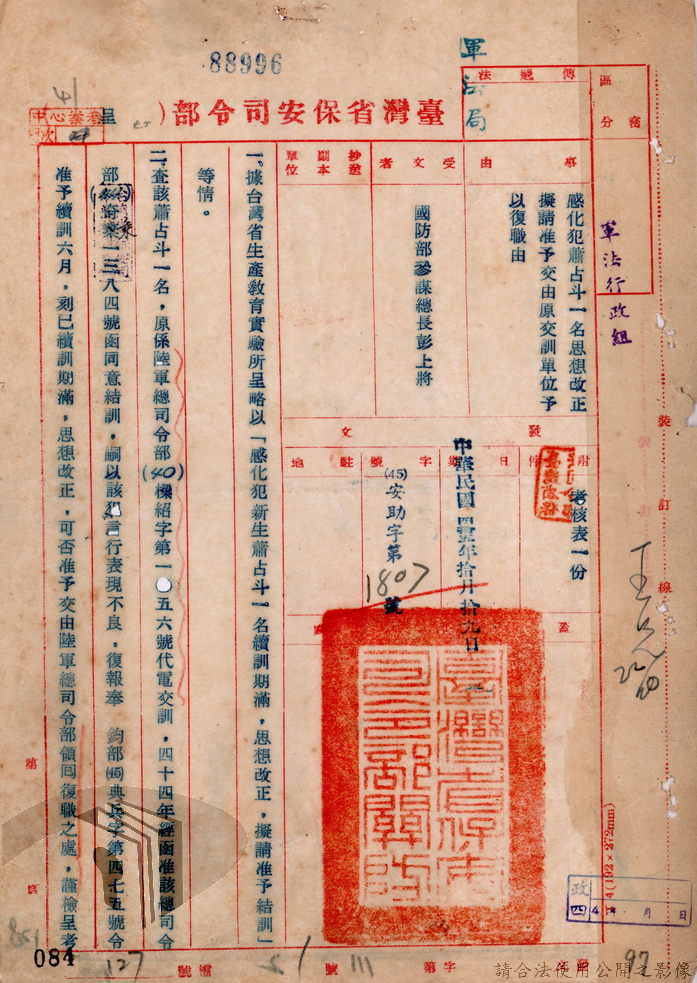 88996
軍法局
臺灣省保安司令部
呈
區分
傳遞法
軍法行政組
事由
感化犯蕭占斗一名思想改正
擬請准予交由原交訓單位予
以復職由
受文者
國防部參謀總長彭上將
抄送副本單位
發文
附件
考核表一份
日期
中華民國四五年拾月拾九日
字號
(45)安助字第1807號
駐地
一、據台灣省生產教育實驗所呈略以「感化犯新生蕭占斗一名續訓期滿，思想改正，擬請准予結訓」
等情。
二、查該蕭占斗一名，原係陸軍總司令部(40)樑紹字第一〇五六號代電交訓，四十四年經函准該總司令
部奇棄一三八四號函同意結訓，嗣以該犯言行表現不良，復報奉 鈞部(45)典長字第四七五號令
准予續訓六月，刻已續訓期滿，思想改正，可否准予交由陸軍總司令部領回復職之處，謹檢呈考
臺灣省保安司令部關防
裝訂線
(192×272mm)
政四
年 月 日
第 頁
084
127
字第 號
111
97
請合法使用公開之影像